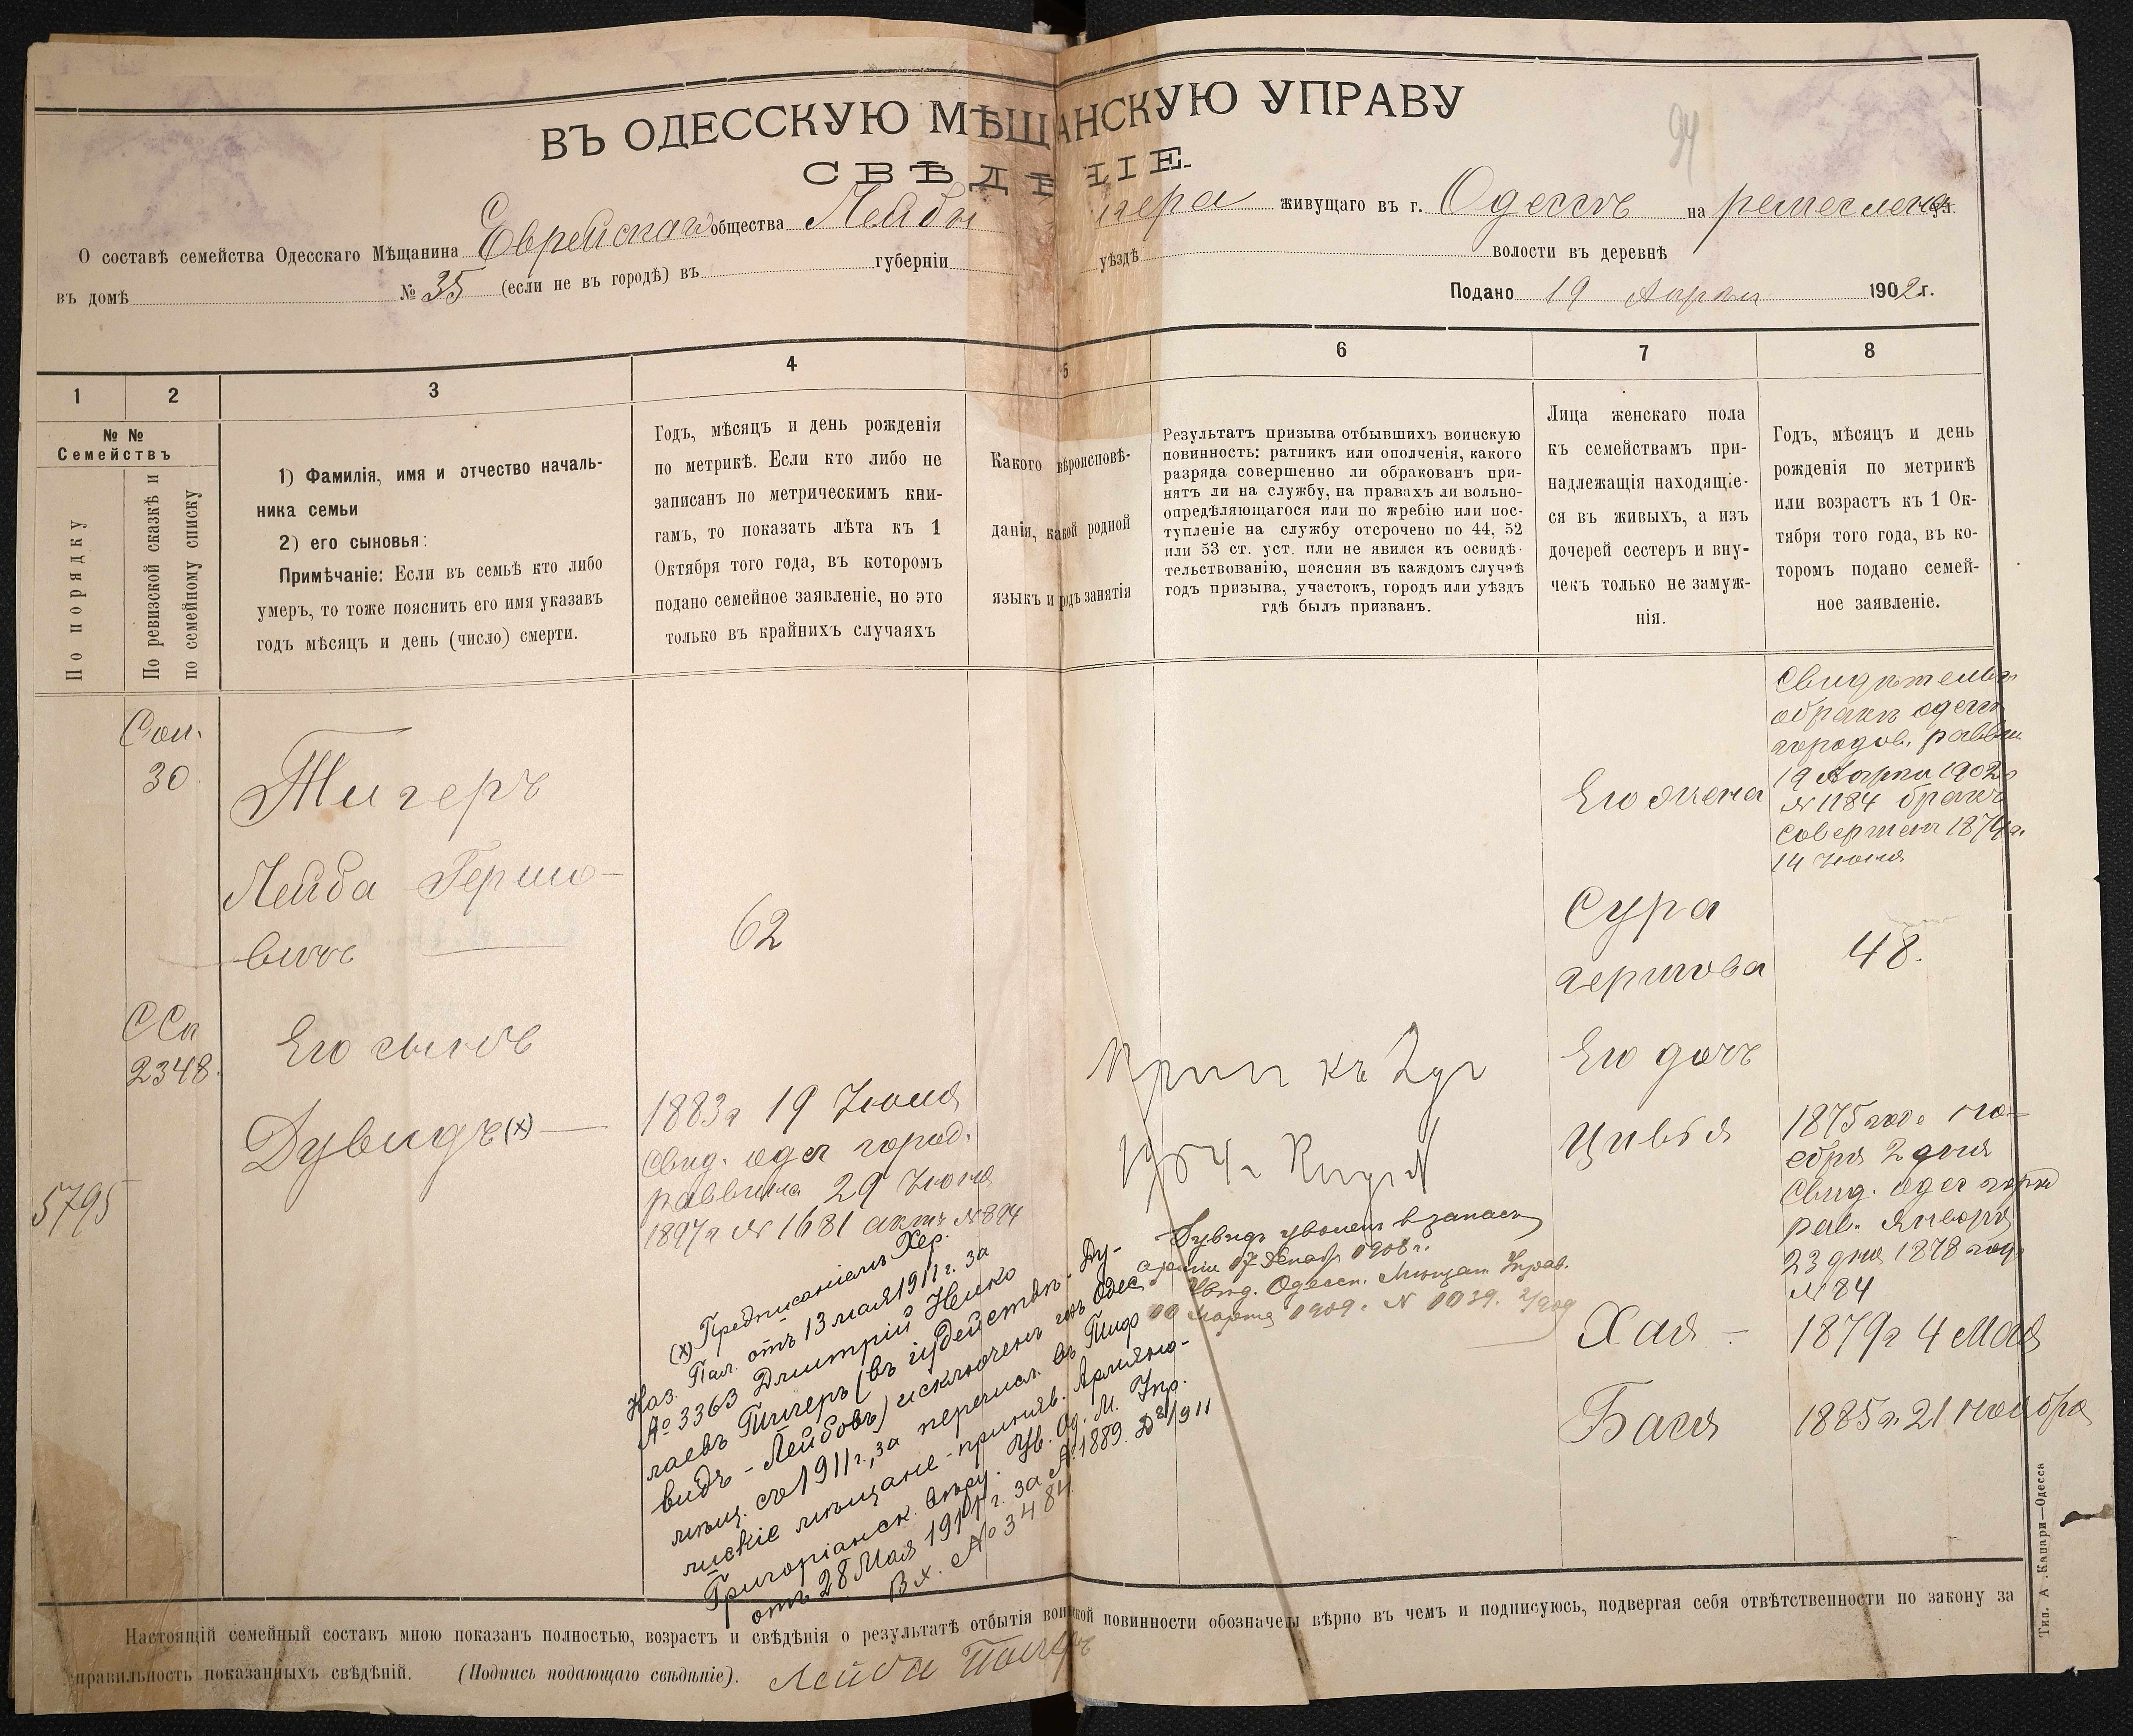 94
ВЪ ОДЕССКУЮ МѢЩАНСКУЮ УПРАВУ
СВѢДѢНІЕ
О составѣ семейства Одесскаго Мѣщанина Еврейскаго общества Лейбы игера живущаго въ г. Одессѣ на ремеслен ул.
въ домѣ № 35 (если не въ городѣ) въ губерніи уѣздѣ волости въ деревнѣ
Подано 19 Апрѣля 1902 г.
1
2
3
4
5
6
7
8
№ №
Семействъ
По порядку
По ревизской сказкѣ и
по семейному списку
1) Фамилія, имя и отчество началь-
ника семьи
2) его сыновья:
Примѣчаніе: Если въ семьѣ кто либо
умеръ, то тоже пояснить его имя указавъ
годъ мѣсяцъ и день (число) смерти.
Годъ, мѣсяцъ и день рожденія
по метрикѣ. Если кто либо не
записанъ по метрическимъ кни-
гамъ, то показать лѣта къ 1
Октября того года, въ которомъ
подано семейное заявленіе, но это
только въ крайнихъ случаяхъ
Какого вѣроисповѣ-
данія, какой родной
языкъ и родъ занятія
Результатъ призыва отбывшихъ воинскую
повинность: ратникъ или ополченія, какого
разряда совершенно ли обракованъ при-
нятъ ли на службу, на правахъ ли вольно-
опредѣляющагося или по жребію или пос-
тупленіе на службу отсрочено по 44, 52
или 53 ст. уст. или не явился къ освидѣ-
тельствованію, поясняя въ каждомъ случаѣ
годъ призыва, участокъ, городъ или уѣздъ
гдѣ былъ призванъ.
Лица женскаго пола
къ семействамъ при-
надлежащія находящіе-
ся въ живыхъ, а изъ
дочерей сестеръ и вну-
чекъ только не замуж-
нія.
Годъ, мѣсяцъ и день
рожденія по метрикѣ
или возрастъ къ 1 Ок-
тября того года, въ ко-
торомъ подано семей-
ное заявленіе.
30
Тигеръ
Лейба Гершо-
вичъ
62
ССп
2348.
Его сынъ
Дувидъ (х)
5795
1883 г 19 Іюня
Свид. одес город.
раввина 29 Іюня
1897 г № 1681 актъ № 894
(х) Предписаніемъ Хер.
Каз. Пал. отъ 13 мая 1911 г. за
№ 3363 Дмитрій Нико
лаевъ Тигеръ (въ іудействѣ - Ду-
видъ - Лейбовъ) исключенъ изъ Одес.
мѣщ. съ 1911 г., за перечисл. въ Тиф
лискіе мѣщане - приняв. Армяно-
Григоріанск. вѣру. Ув. Од. М. Упр.
отъ 28 Мая 1911 г. за № 1889. 1911
Вх. № 3484
къ
Дувидъ уволенъ в запасъ
арміи 17 Декабр 1908 г.
Одесск. Мѣщан Управ.
Марта 1909 г. N 1039.
Его жена
Сура
гершова
Его дочь
Цивья
Хая -
Бася
Свидѣтельв
о бракѣ одесс
городов. раввин
19 Апрѣля 1902 г
№ 1184 бракъ
совершенъ 1874 г.
14 Іюня
48.
1875 года но-
ября 2 дня
Свид. одес город
рав. Января
23 дня 1878 года
№ 84
1879 г 4 Мая
1885 г. 21 ноября
Настоящій семейный составъ мною показанъ полностью, возрастъ и свѣдѣнія о результатѣ отбытія воинской повинности обозначены вѣрно въ чемъ и подписуюсь, подвергая себя отвѣтственности по закону за
правильность показанныхъ свѣдѣній. (Подпись подающаго свѣдѣніе). Лейба Тигеръ
Тип. А. Капари—Одесса